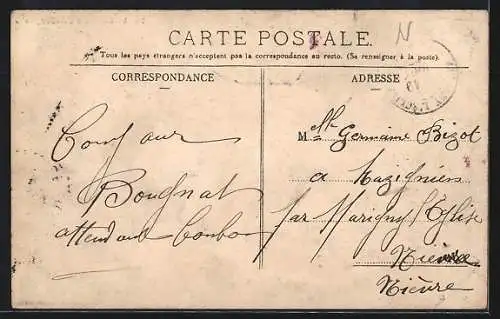 N
CARTE POSTALE.
Tous les pays étrangers n'acceptent pas la correspondance au recto. (Se renseigner à la poste).
CORRESPONDANCE
ADRESSE
Bougnat
attendant bonbon
Mlle Germaine Bizot
a Mazignien
par Marigny l'Eglise
Nièvre
Nièvre